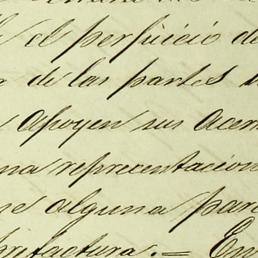 el perjuicio de
de las partes
apoyen sus acer
na representacion
se alguna par
factura. = En